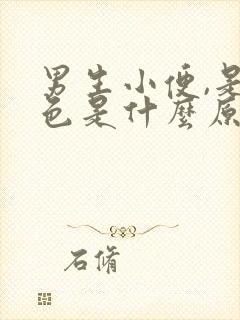 男生小便,是
色是什麼原
石脩